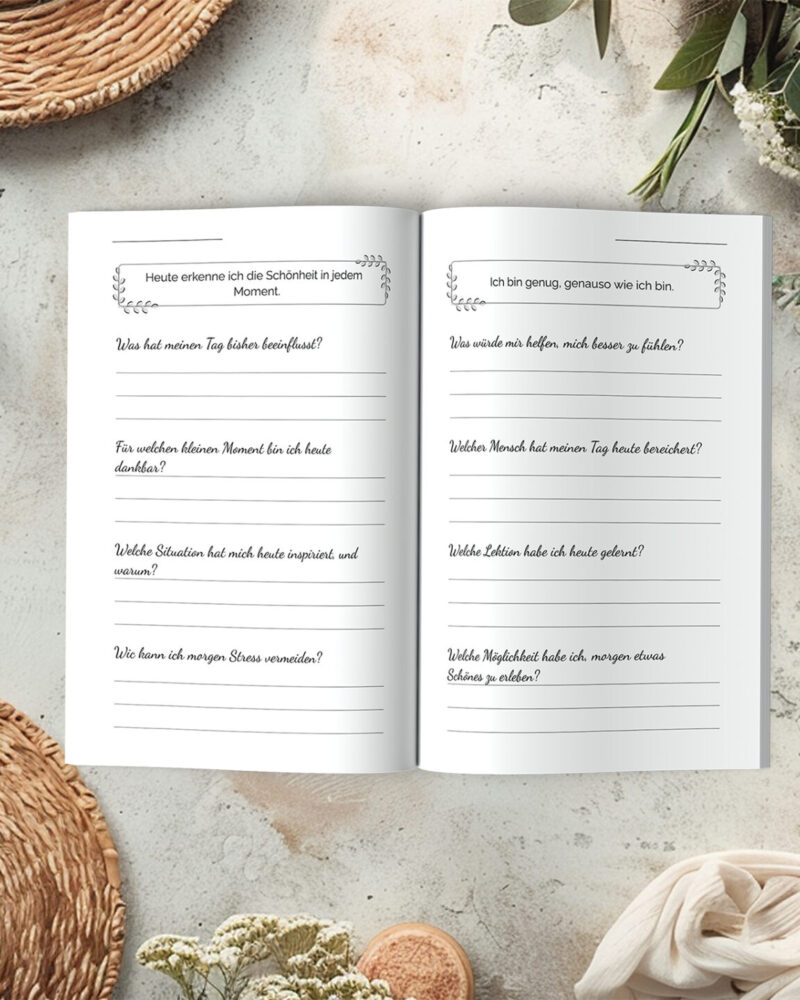 Heute erkenne ich die Schönheit in jedem
Moment.
Was hat meinen Tag bisher beeinflusst?
Für welchen kleinen Moment bin ich heute
dankbar?
Welche Situation hat mich heute inspiriert, und
warum?
Wie kann ich morgen Stress vermeiden?
Ich bin genug, genauso wie ich bin.
Was würde mir helfen, mich besser zu fühlen?
Welcher Mensch hat meinen Tag heute bereichert?
Welche Lektion habe ich heute gelernt?
Welche Möglichkeit habe ich, morgen etwas
Schönes zu erleben?